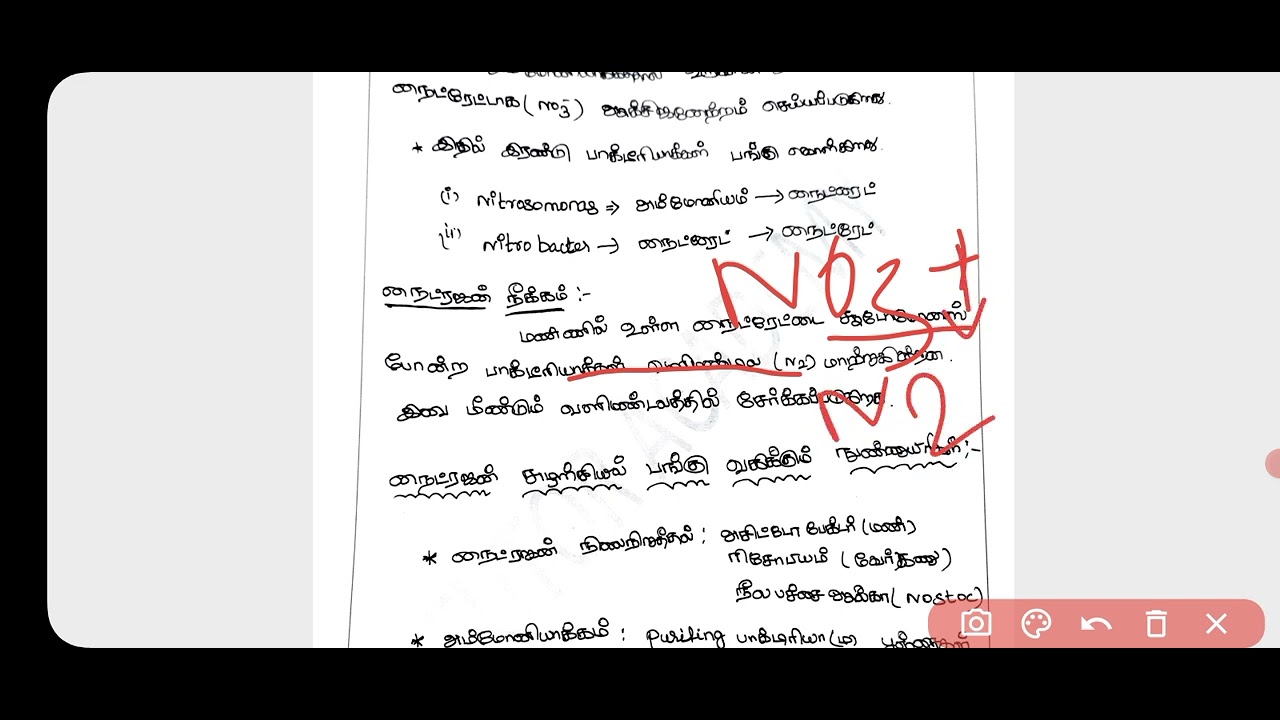 நைட்ரேட்டாக (NO3-) ஆக்சிஜனேற்றம் செய்யபடுகிறது.
* இதில் இரண்டு பாக்டீரியாக்கள் பங்கு
(i) Nitrosomonas => அம்மோனியம் → நைட்ரைட்
(ii) Nitrobacter → நைட்ரைட் → நைட்ரேட்
NO3
↓
நைட்ரஜன் நீக்கம் :-
மண்ணில் உள்ள நைட்ரேட்டை
போன்ற பாக்டீரியாக்கள் (N2) மாற்றுகின்றன.
N2
இவை மீண்டும் வளிமண்டலத்தில் சேர்க்கப்படுகிறது.
நைட்ரஜன் சுழற்சியில் பங்கு வகிக்கும் நுண்ணுயிரிகள் :-
* நைட்ரஜன் நிலைநிறுத்தல் : அசிட்டோபேக்டர் (மண்)
ரிசோபியம் (வேர்முண்டு)
நீல பச்சை ஆல்கா (Nostoc)
* அம்மோனியாக்கம் : பாக்டீரியா (ம) பூஞ்சைகள்